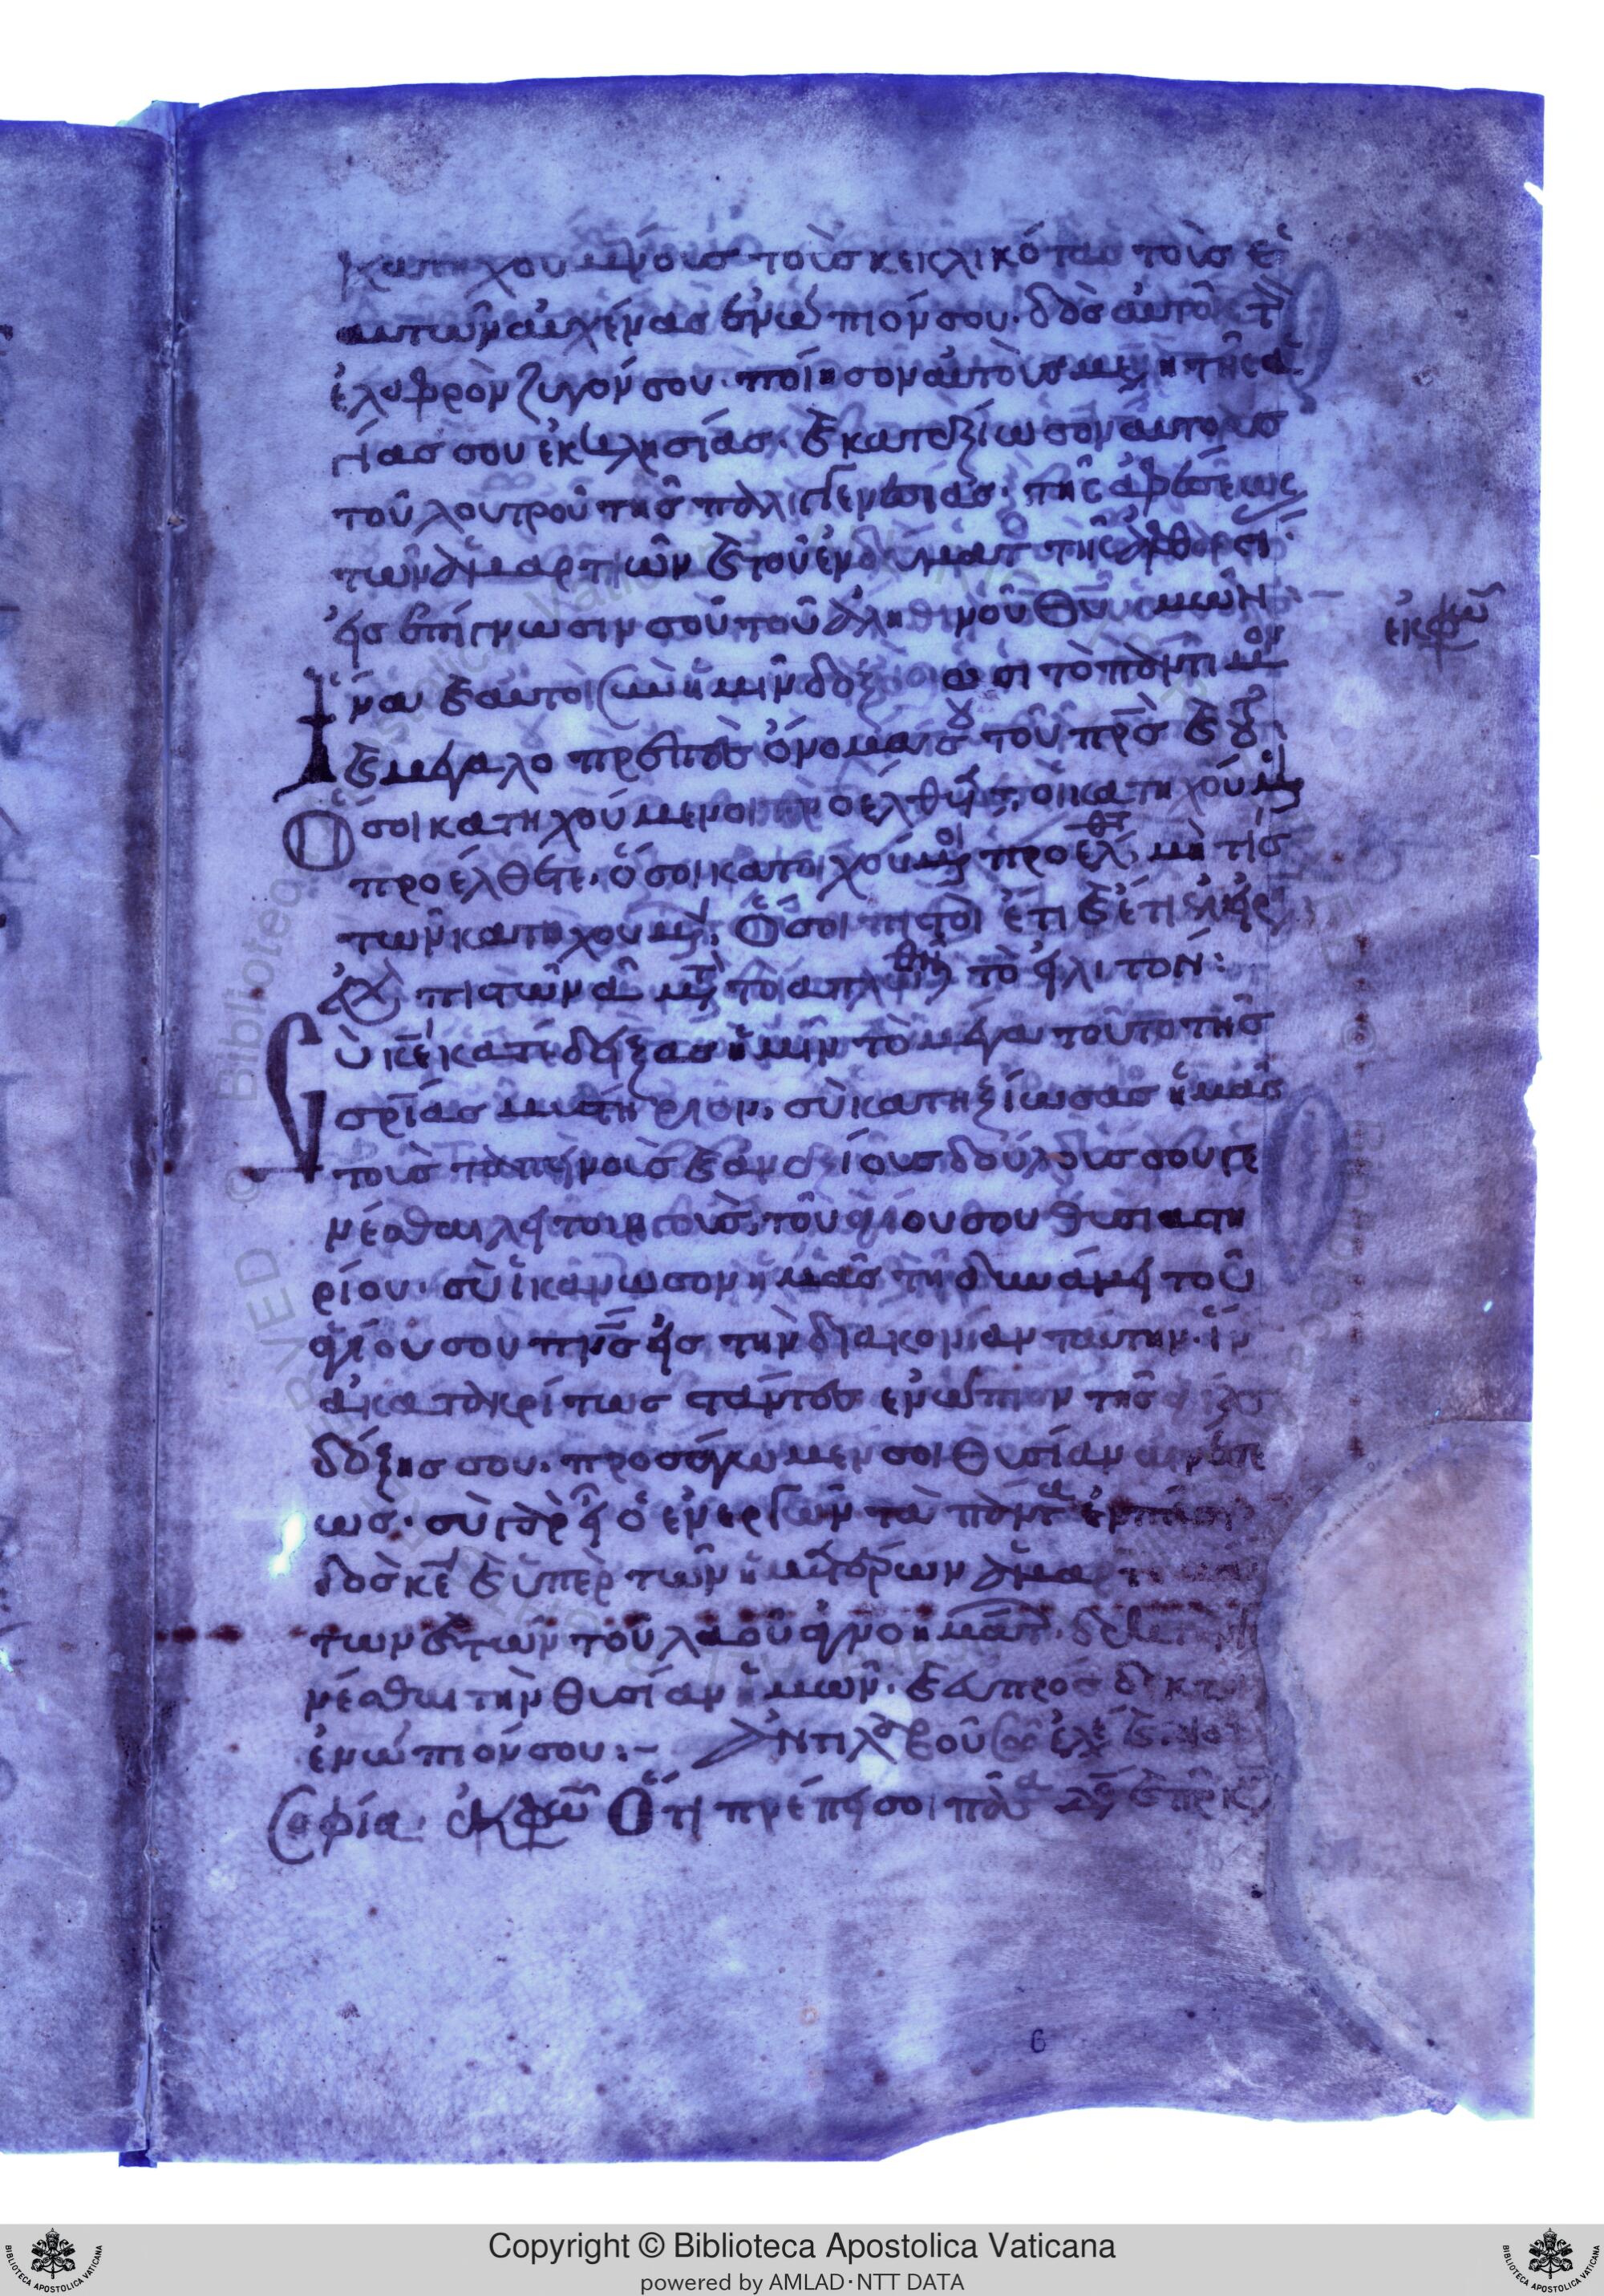 κατηχουμένους τοὺς κεκλικότας τοὺς ἑ
αυτῶν αυχένας ἐνώπιόν σου· δὸς αὐτοῖς τὸν
ἐλαφρὸν ζυγόν σου· ποίησον αὐτοὺς μέλη τῆς ἁ
γίας σου ἐκκλησίας· καὶ καταξίωσον αὐτοὺς
τοῦ λουτροῦ τῆς παλιγγενεσίας· τῆς ἀφέσεως
τῶν ἁμαρτιῶν καὶ τοῦ ἐνδύματος τῆς ἀφθαρσί
εἰς ἐπίγνωσιν σοῦ τοῦ ἀληθινοῦ Θῦ ἡμῶν
ἐκφω
Ἵνα καὶ αὐτοὶ σὺν ἡμῖν δοξάζωσι τὸ πάντιμον
καὶ μεγαλοπρεπὲς ὄνομά σου τοῦ πρς καὶ τοῦ
Ὅσοι κατηχούμενοι προέλθετε, οἱ κατηχούμενοι
προέλθετε· ὅσοι κατηχούμενοι προέλθετε, μὴ τις
τῶν κατηχουμένων, Ὅσοι πιστοὶ ἔτι καὶ ἔτι ἐν εἰρ
εὐχ πιστῶν α μετὰ τὸ ἁπλωθῆναι τὸ εἰλιτόν:
Σὺ κε κατέδειξας ἡμῖν τὸ μέγα τοῦτο τῆς
σρίας μυστήριον, σὺ κατηξίωσας ἡμᾶς
τοὺς ταπεινοὺς καὶ ἀναξίους δούλους σου γε
νέσθαι λειτουργοὺς, τοῦ ἁγίου σου θυσιαστη
ρίου· σὺ ἱκάνωσον ἡμᾶς τῇ δυνάμει τοῦ
ἁγίου σου πνς εἰς τὴν διακονίαν ταύτην· ἵν
ἀκατακρίτως στάντες ἐνώπιον τῆς ἁγίας
δόξης σου, προσάγωμεν σοι θυσίαν αἰνέσε
ως· σὺ γὰρ εἶ ὁ ἐνεργῶν τὰ πάντα ἐν πᾶσι
δὸς κε καὶ ὑπὲρ τῶν ἡμετέρων ἁμαρτημά
των καὶ τῶν τοῦ λαοῦ ἀγνοημάτ. δεκτὴν γι
νέσθαι τὴν θυσίαν ἡμῶν· καὶ εὐπρόσδεκτον
ἐνώπιόν σου:– Ἀντιλαβοῦ σῶ ἐλέ καὶ
Σοφία. ἐκφω Ὅτι πρέπει σοι πᾶσα δόξα
6
Copyright © Biblioteca Apostolica Vaticana
powered by AMLAD·NTT DATA